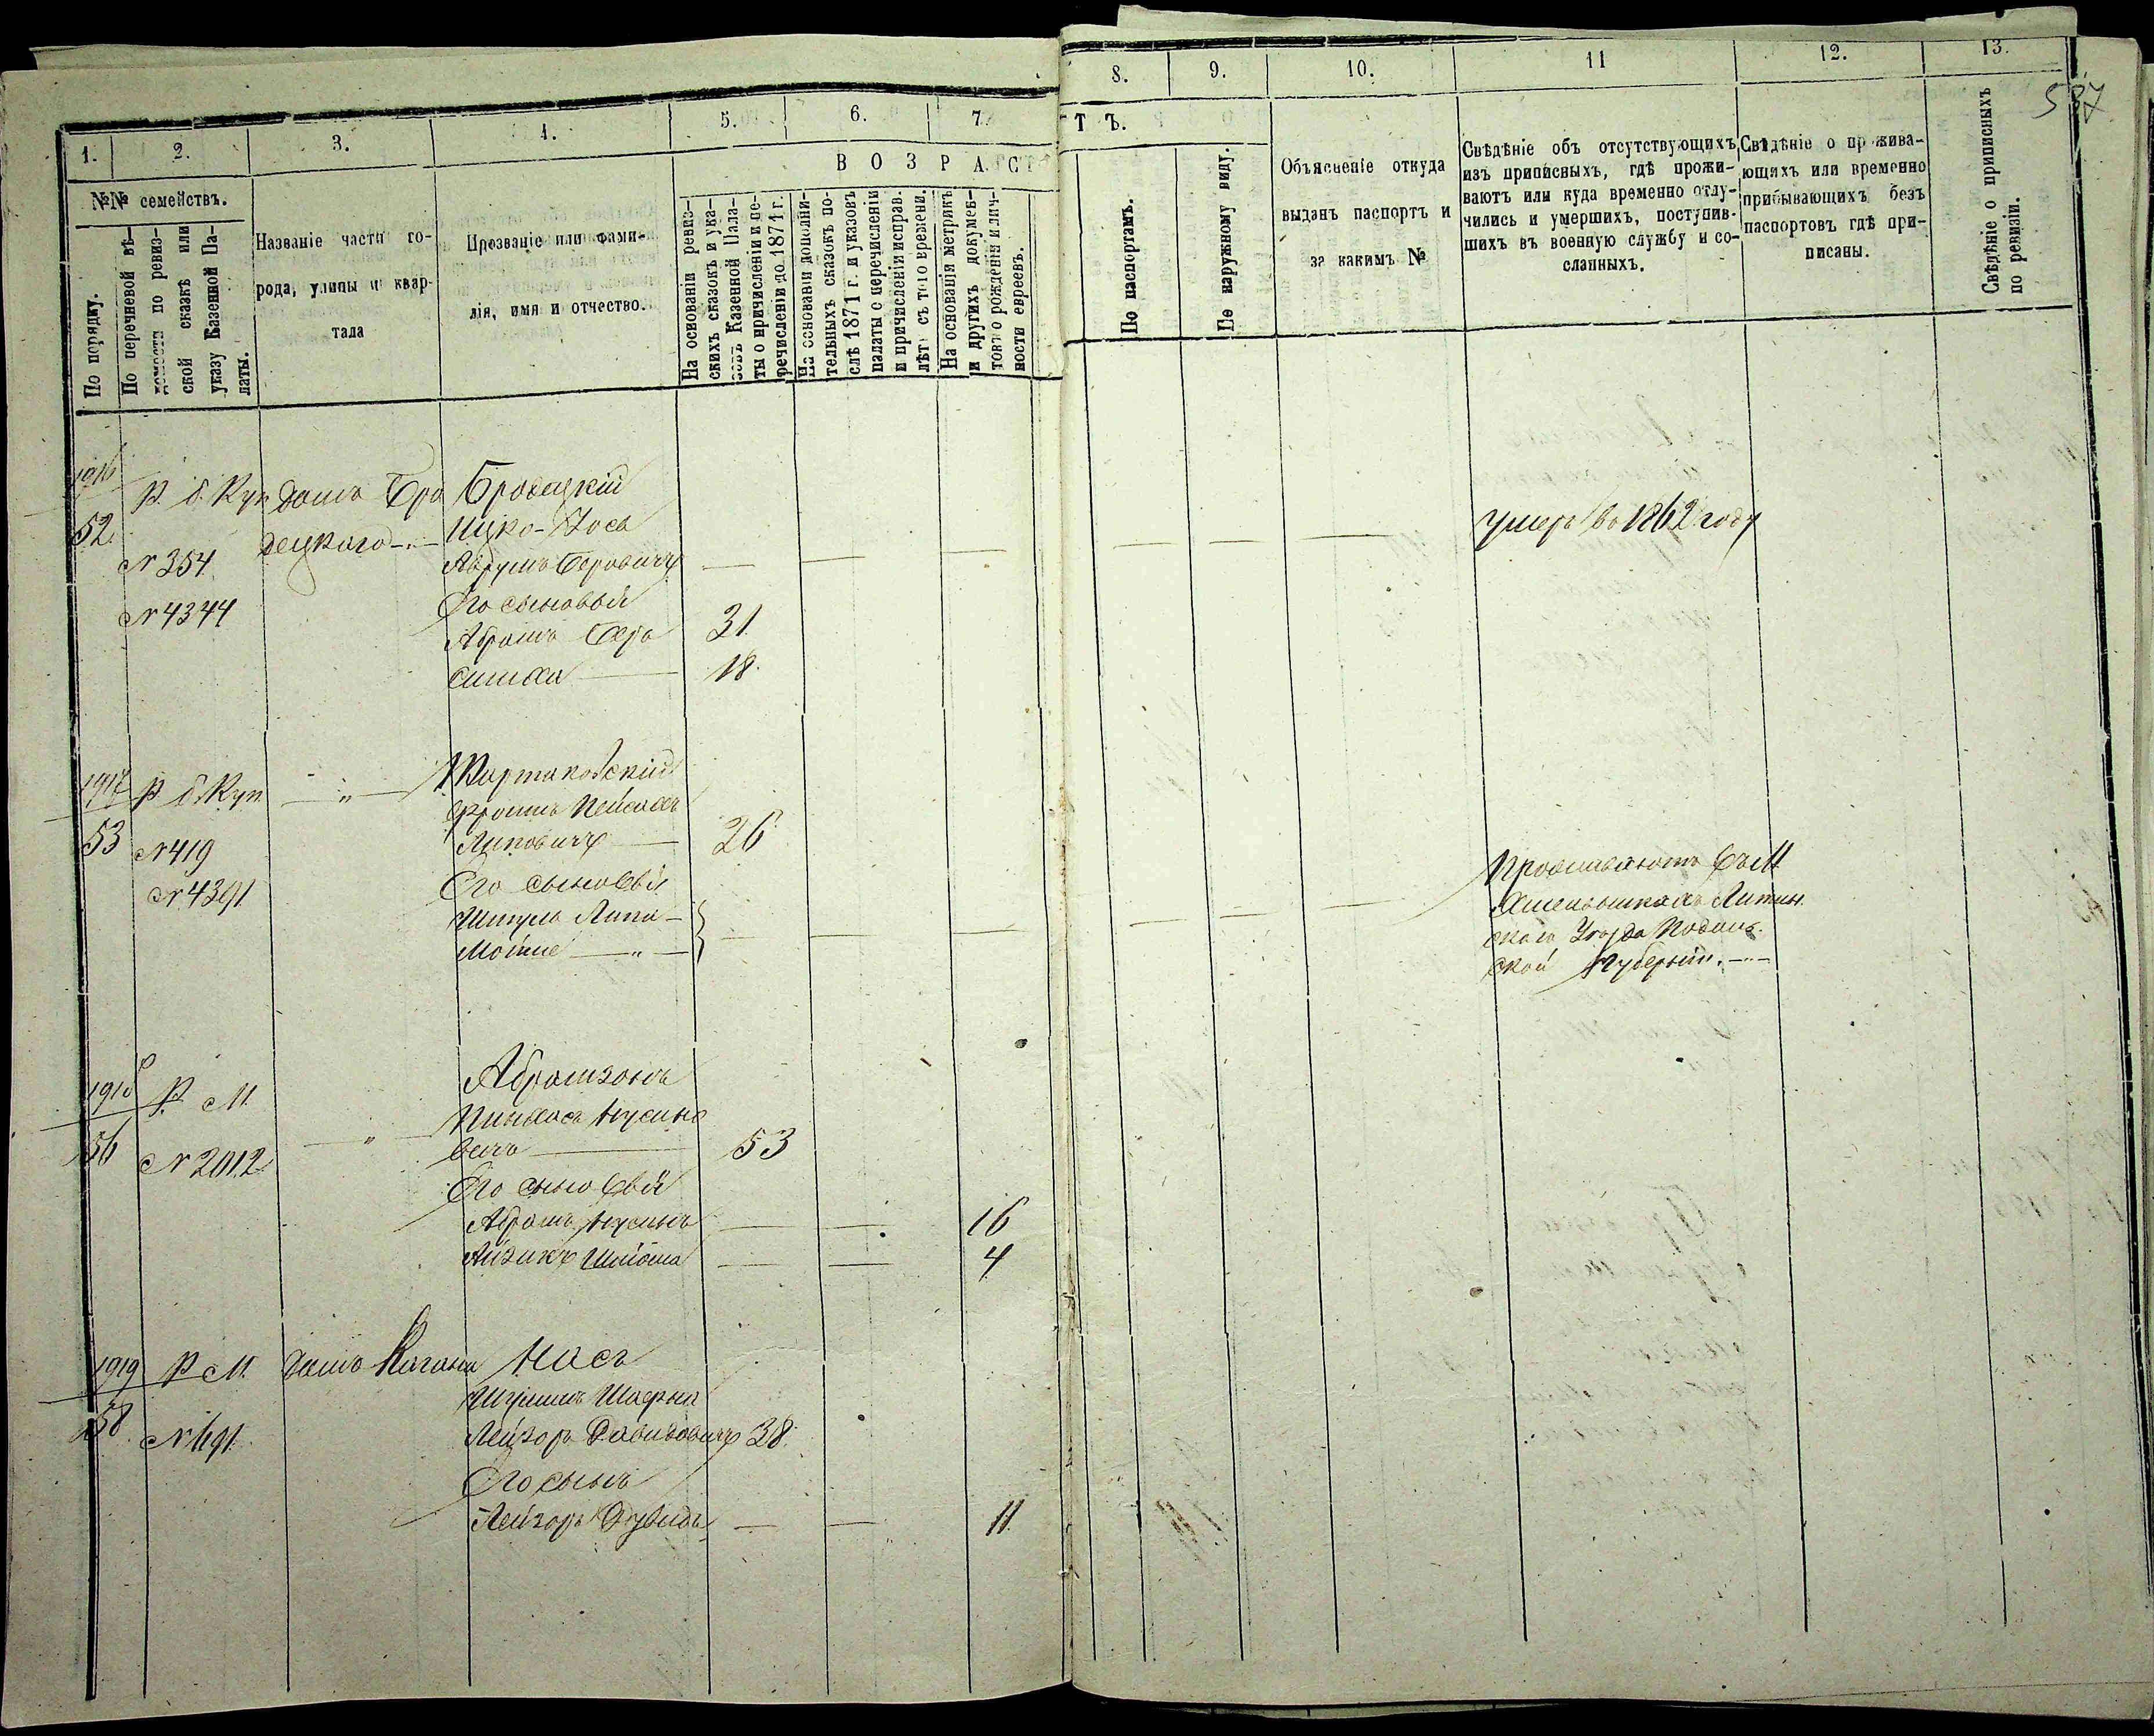 1.
2.
3.
4.
5.
6.
7.
8.
9.
10.
11
12.
13.
537
ВОЗРАСТЪ.
№№ семействъ.
По порядку.
По перечневой вѣ-
домости по ревиз-
ской сказкѣ или
указу Казенной Па-
латы.
Названіе части го-
рода, улицы и квар-
тала
Прозваніе или фами-
лія, имя и отчество.
На основаніи ревиз-
скихъ сказокъ и ука-
зовъ Казенной Пала-
ты о причисленіи и пе-
речисленіи до 1871 г.
На основаніи дополни-
тельныхъ сказокъ по-
слѣ 1871 г. и указовъ
палаты о перечисленіи
и причисленіи исправ.
лѣтъ съ того времени.
На основаніи метрикъ
и другихъ докумен-
товъ о рожденіи и лич-
ности евреевъ.
По паспортамъ.
По наружному виду.
Объясненіе откуда
выданъ паспортъ и
за какимъ №
Свѣдѣніе объ отсутствующихъ
изъ приписныхъ, гдѣ прожи-
ваютъ или куда временно отлу-
чились и умершихъ, поступив-
шихъ въ военную службу и со-
сланныхъ.
Свѣдѣніе о прожива-
ющихъ или временно
прибывающихъ безъ
паспортовъ гдѣ при-
писаны.
Свѣдѣніе о приписныхъ
по ревизіи.
1916
52
Р. б. Куп
№ 354
№ 4344
домъ Бро
децкаго
Бродецкій
Ицко-Іось
Аврумъ Беровичъ
Умеръ въ 1862 году
Его сыновья
Абрамъ Беръ 31
Симха 18.
1917
53
Р. б. Куп
№ 419
№ 4391
"
Жартаковскій
Фроимъ Пейсахъ
Липовичъ 26
Его сыновья
Шмуль Липа
Мойше "
Проживаютъ въ М
Хмельникахъ Литин.
скаго Уѣзда Подоль.
ской Губерніи.
1918
56
Р. М.
№ 2012
"
Абрамзонъ
Пинхасъ Нусино
вичъ 53
Его сыновья
Абрамъ Нусинъ 16
Айзикъ 4
1919
58
Р. М.
№ 1691
домъ Кагана
Насъ
Лейзоръ Давидовичъ 38.
Его сынъ
Лейзоръ Дувидъ 11.